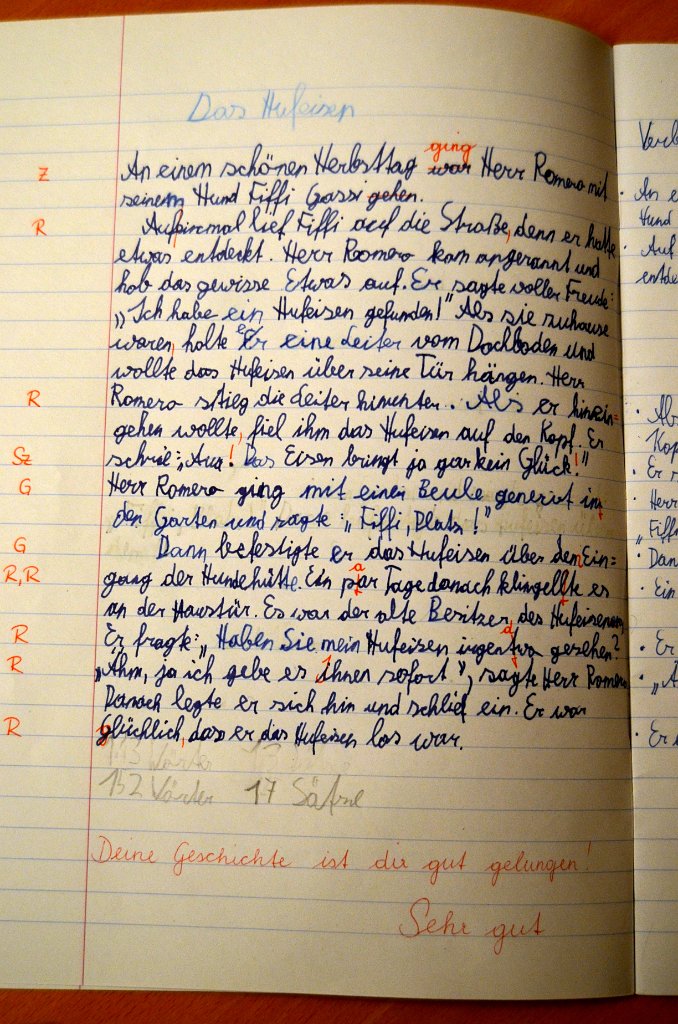 Das Hufeisen
ging
Z An einem schönen Herbsttag war Herr Romero mit
seinem Hund Fiffi Gassi gehen.
R Aufeinmal lief Fiffi auf die Straße, denn er hatte
etwas entdeckt. Herr Romero kam angerannt und
hob das gewisse Etwas auf. Er sagte voller Freude:
„Ich habe ein Hufeisen gefunden!" Als sie zuhause
waren, holte er eine Leiter vom Dachboden und
wollte das Hufeisen über seine Tür hängen. Herr
R Romero stieg die Leiter hinunter. Als er hinein=
gehen wollte, fiel ihm das Hufeisen auf den Kopf. Er
Sz schrie: „Aua! Das Eisen bringt ja gar kein Glück!"
G Herr Romero ging mit einer Beule genervt in
den Garten und sagte: „Fiffi, Platz!"
G Dann befestigte er das Hufeisen über den Ein=
R, R gang der Hundehütte. Ein paar Tage danach klingellte es
an der Haustür. Es war der alte Besitzer des Hufeisens.
R Er fragte: „Haben Sie mein Hufeisen irgentwo gesehen?
d
R „Ähm, ja ich gebe es Ihnen sofort", sagte Herr Romero
Danach legte er sich hin und schlief ein. Er war
R glücklich, dass er das Hufeisen los war.
152 Wörter 17 Sätze
Deine Geschichte ist dir gut gelungen!
Sehr gut
Verb
An e
Hund
Auf
entde
Als
Kop
Er s
Herr
„Fiffi
Dan
Ein
Er
„Ä
Er w